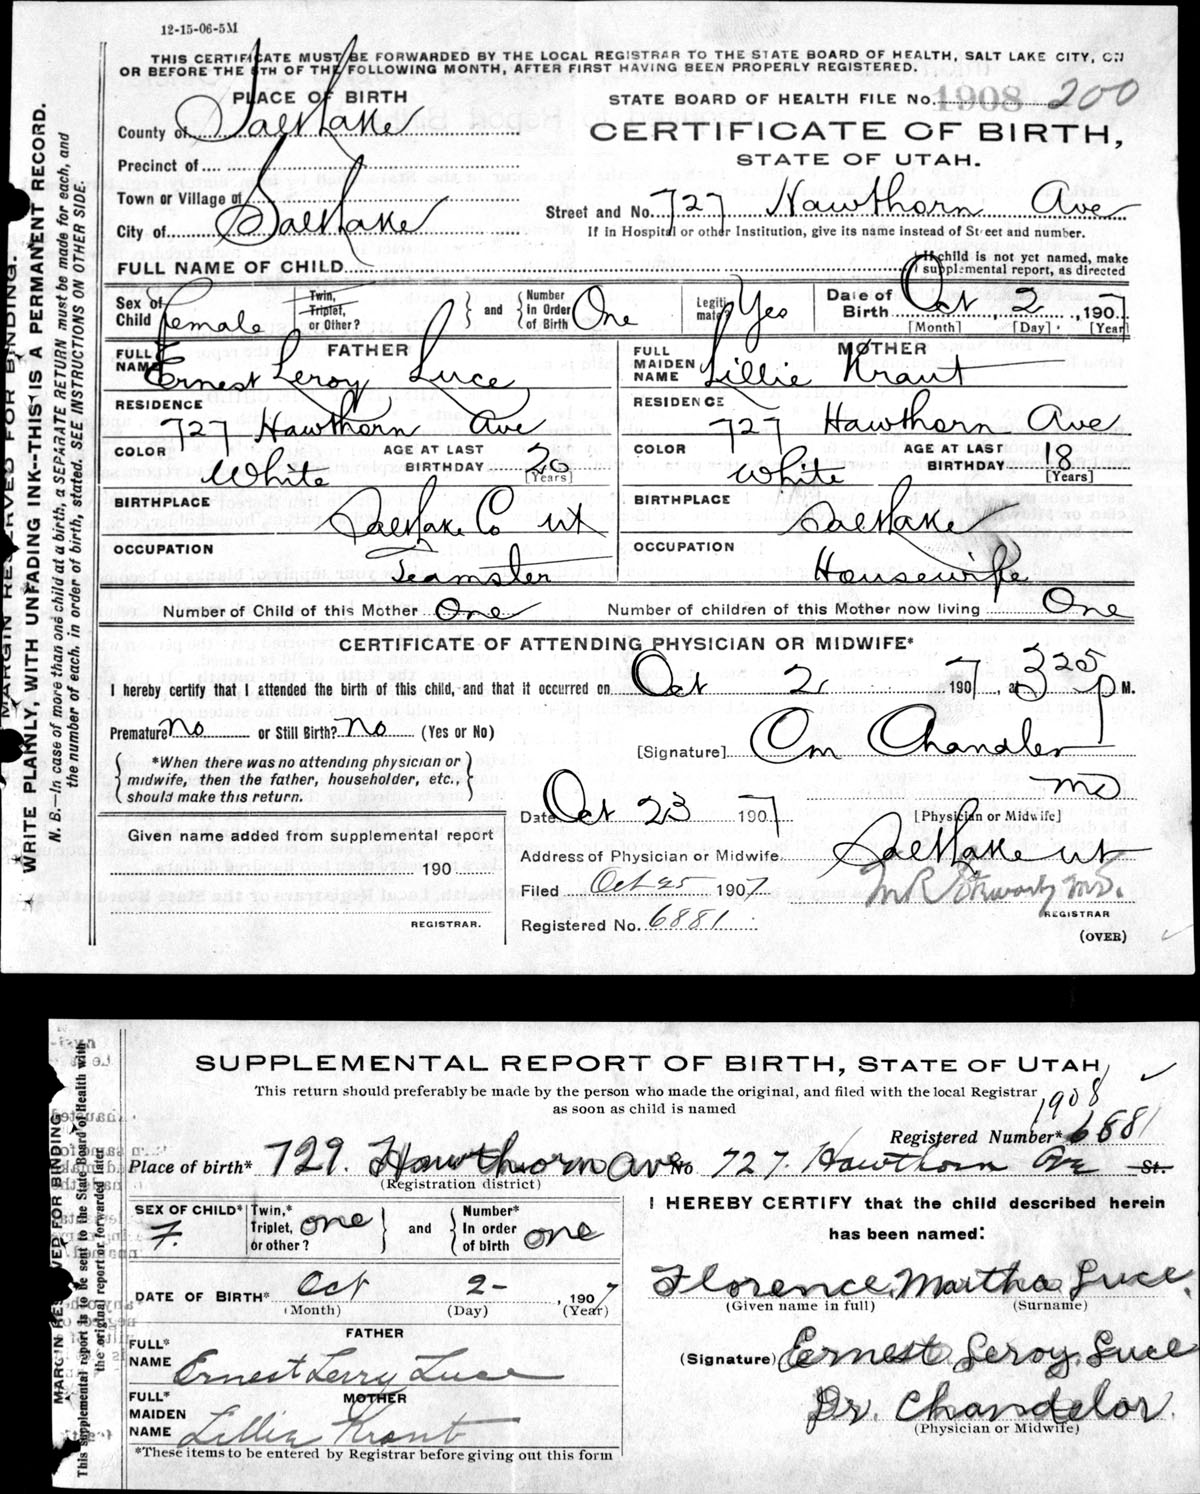 12-15-06-5M
THIS CERTIFICATE MUST BE FORWARDED BY THE LOCAL REGISTRAR TO THE STATE BOARD OF HEALTH, SALT LAKE CITY, ON
OR BEFORE THE 5TH OF THE FOLLOWING MONTH, AFTER FIRST HAVING BEEN PROPERLY REGISTERED.
MARGIN RESERVED FOR BINDING.
WRITE PLAINLY, WITH UNFADING INK--THIS IS A PERMANENT RECORD.
N. B.--In case of more than one child at a birth, a SEPARATE RETURN must be made for each, and
the number of each, in order of birth, stated. SEE INSTRUCTIONS ON OTHER SIDE.
PLACE OF BIRTH
STATE BOARD OF HEALTH FILE No. 1908 200
County of Salt Lake
CERTIFICATE OF BIRTH,
STATE OF UTAH.
Precinct of
Town or Village of
Street and No. 727 Hawthorn Ave
City of Salt Lake
If in Hospital or other Institution, give its name instead of Street and number.
FULL NAME OF CHILD
If child is not yet named, make
supplemental report, as directed
Sex of Child Female
Twin, Triplet, or Other? and Number in Order of Birth One
Legitimate? Yes
Date of Birth Oct 2, 1907
[Month] [Day] [Year]
FATHER
FULL NAME Ernest Leroy Luce
MOTHER
FULL MAIDEN NAME Lillie Krant
RESIDENCE 727 Hawthorn Ave
RESIDENCE 727 Hawthorn Ave
COLOR White AGE AT LAST BIRTHDAY 20 [Years]
COLOR White AGE AT LAST BIRTHDAY 18 [Years]
BIRTHPLACE Salt Lake Co Ut
BIRTHPLACE Salt Lake
OCCUPATION Teamster
OCCUPATION Housewife
Number of Child of this Mother One Number of children of this Mother now living One
CERTIFICATE OF ATTENDING PHYSICIAN OR MIDWIFE*
I hereby certify that I attended the birth of this child, and that it occurred on Oct 2 1907, at 3 25 P M.
Premature? No or Still Birth? No (Yes or No)
[Signature] Cm Chandler
MD
[Physician or Midwife]
*When there was no attending physician or
midwife, then the father, householder, etc.,
should make this return.
Date Oct 23 1907
Given name added from supplemental report
190
REGISTRAR.
Address of Physician or Midwife Salt Lake Ut
Filed Oct 25 1907
REGISTRAR
Registered No. 6881
(OVER)
SUPPLEMENTAL REPORT OF BIRTH, STATE OF UTAH
This return should preferably be made by the person who made the original, and filed with the local Registrar
as soon as child is named
1908
Registered Number* 6881
MARGIN RESERVED FOR BINDING
This Supplemental report is to be sent to the State Board of Health with
the original report or forwarded later.
Place of birth* 729. Hawthorn Ave No 727. Hawthorn Ave St.
(Registration district)
SEX OF CHILD* F.
Twin,* Triplet, or other? one and Number* In order of birth one
I HEREBY CERTIFY that the child described herein
has been named:
DATE OF BIRTH* Oct 2- , 1907
(Month) (Day) (Year)
Florence Martha Luce.
(Given name in full) (Surname)
FATHER
FULL* NAME Ernest Lerry Luce
(Signature) Ernest Leroy Luce
MOTHER
FULL* MAIDEN NAME Lillie Krant
Dr. Chandelor.
(Physician or Midwife)
*These items to be entered by Registrar before giving out this form